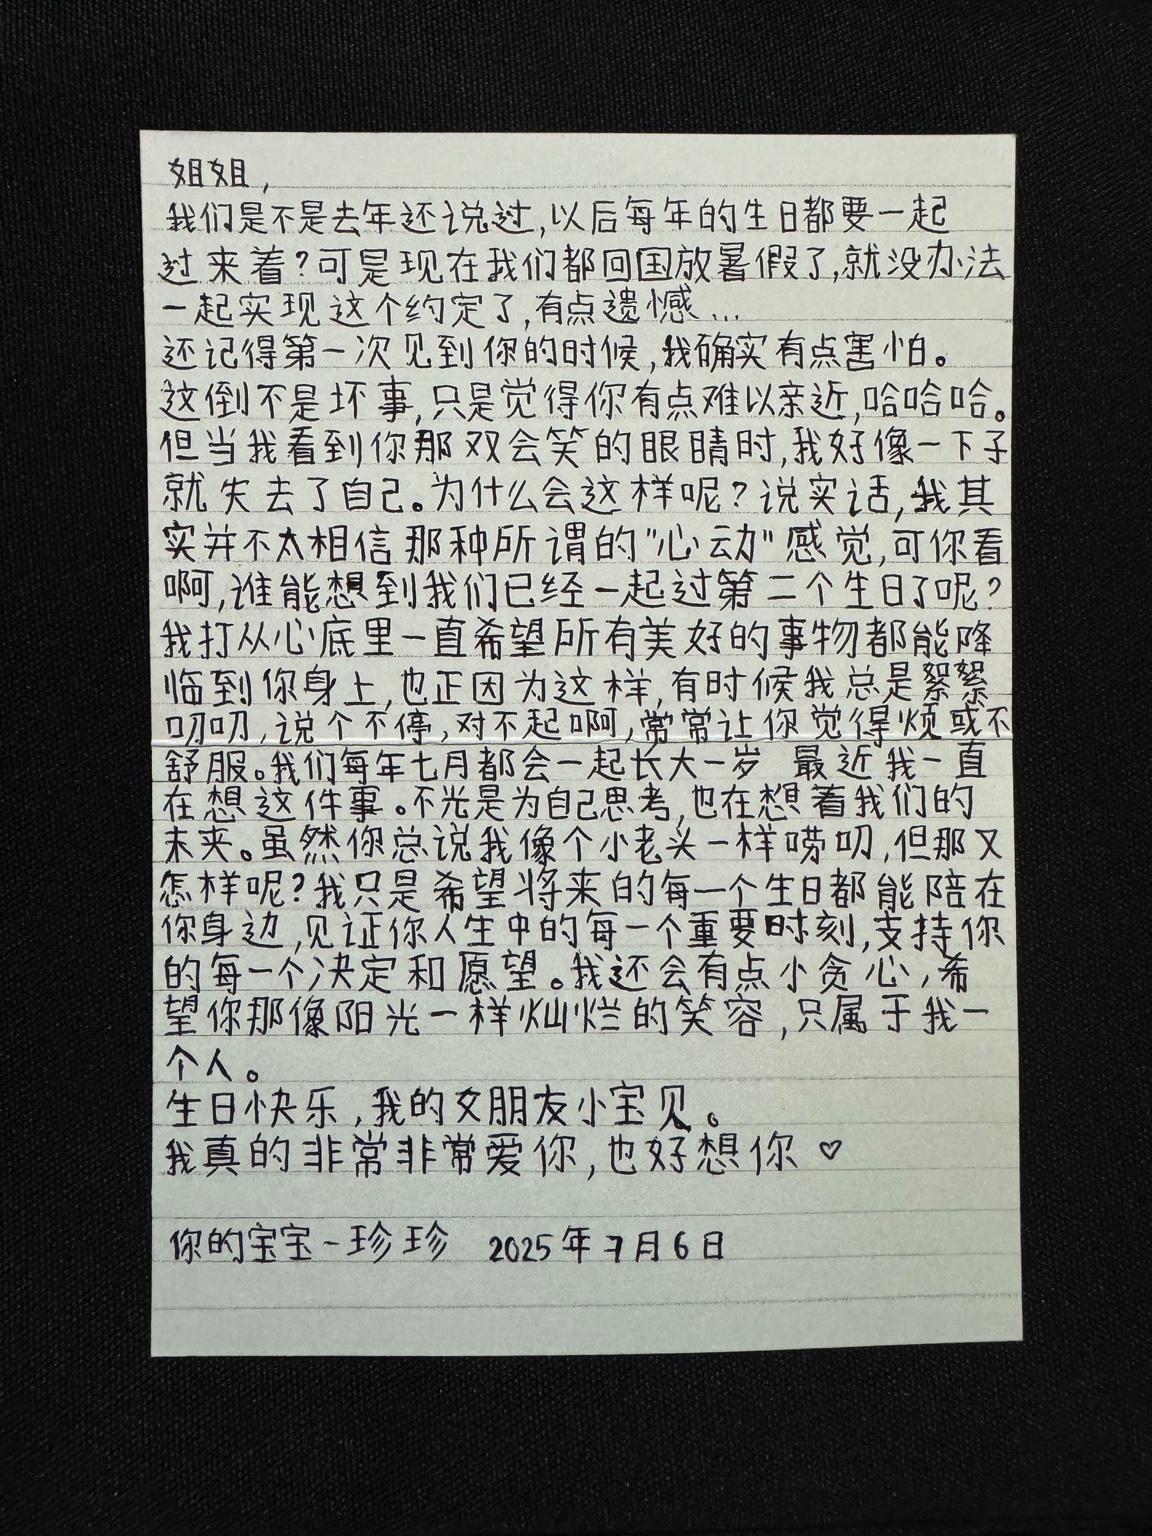 姐姐，
我们是不是去年还说过，以后每年的生日都要一起
过来着？可是现在我们都回国放暑假了，就没办法
一起实现这个约定了，有点遗憾...
还记得第一次见到你的时候，我确实有点害怕。
这倒不是坏事，只是觉得你有点难以亲近，哈哈哈。
但当我看到你那双会笑的眼睛时，我好像一下子
就失去了自己。为什么会这样呢？说实话，我其
实并不太相信那种所谓的"心动"感觉，可你看
啊，谁能想到我们已经一起过第二个生日了呢？
我打从心底里一直希望所有美好的事物都能降
临到你身上，也正因为这样，有时候我总是絮絮
叨叨，说个不停，对不起啊，常常让你觉得烦或不
舒服。我们每年七月都会一起长大一岁 最近我一直
在想这件事。不光是为自己思考，也在想着我们的
未来。虽然你总说我像个小老头一样唠叨，但那又
怎样呢？我只是希望将来的每一个生日都能陪在
你身边，见证你人生中的每一个重要时刻，支持你
的每一个决定和愿望。我还会有点小贪心，希
望你那像阳光一样灿烂的笑容，只属于我一
个人。
生日快乐，我的女朋友小宝贝。
我真的非常非常爱你，也好想你♡
你的宝宝-珍珍 2025年7月6日